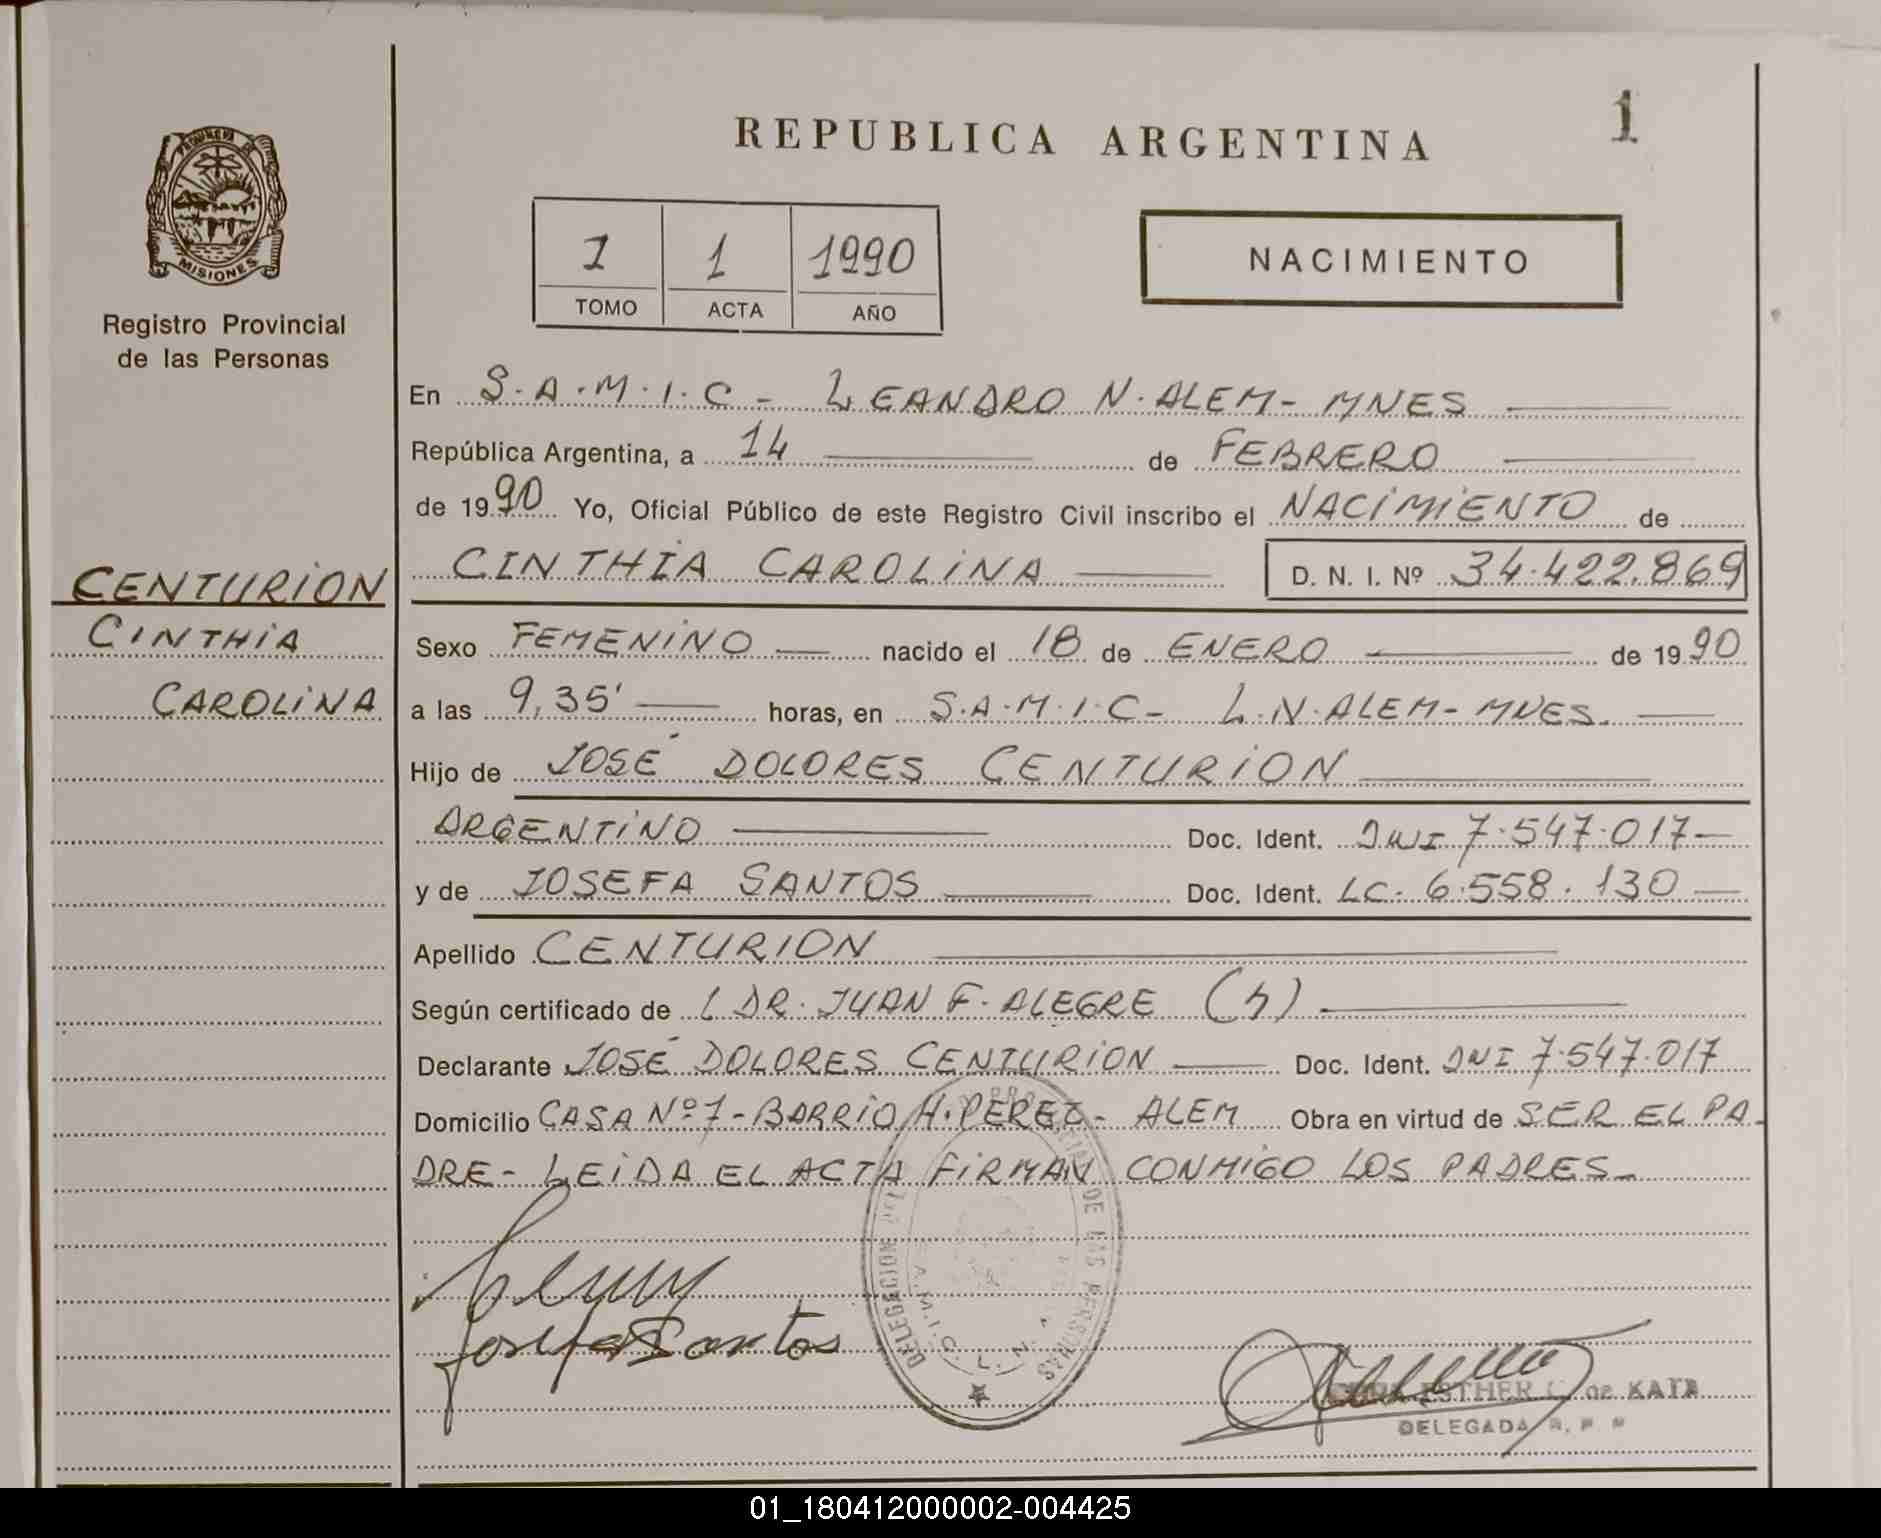 REPUBLICA ARGENTINA
1
PROVINCIA DE
MISIONES
Registro Provincial
de las Personas
1 1 1990
TOMO ACTA AÑO
NACIMIENTO
En S.A.M.I.C - LEANDRO N. ALEM - MNES
República Argentina, a 14 de FEBRERO
de 1990 Yo, Oficial Público de este Registro Civil inscribo el NACIMIENTO de
CENTURION
CINTHIA
CAROLINA
CINTHIA CAROLINA D. N. I. Nº 34.422.869
Sexo FEMENINO nacido el 18 de ENERO de 1990
a las 9,35' horas, en S.A.M.I.C - L.N. ALEM - MNES.
Hijo de JOSÉ DOLORES CENTURION
ARGENTINO Doc. Ident. DNI 7.547.017
y de JOSEFA SANTOS Doc. Ident. LC. 6.558.130
Apellido CENTURION
Según certificado de L DR. JUAN F. ALEGRE (h)
Declarante JOSÉ DOLORES CENTURION Doc. Ident. DNI 7.547.017
Domicilio CASA Nº 7 - BARRIO H. PEREZ - ALEM Obra en virtud de SER EL PA-
DRE - LEIDA EL ACTA FIRMAN CONMIGO LOS PADRES -
Josefa Santos
DELEGACION DEL PROVINCIAL DE LAS PERSONAS
S.A.M.I.C. L. N. ALEM
ESTHER de KATA
DELEGADA R. P. P.
01_180412000002-004425